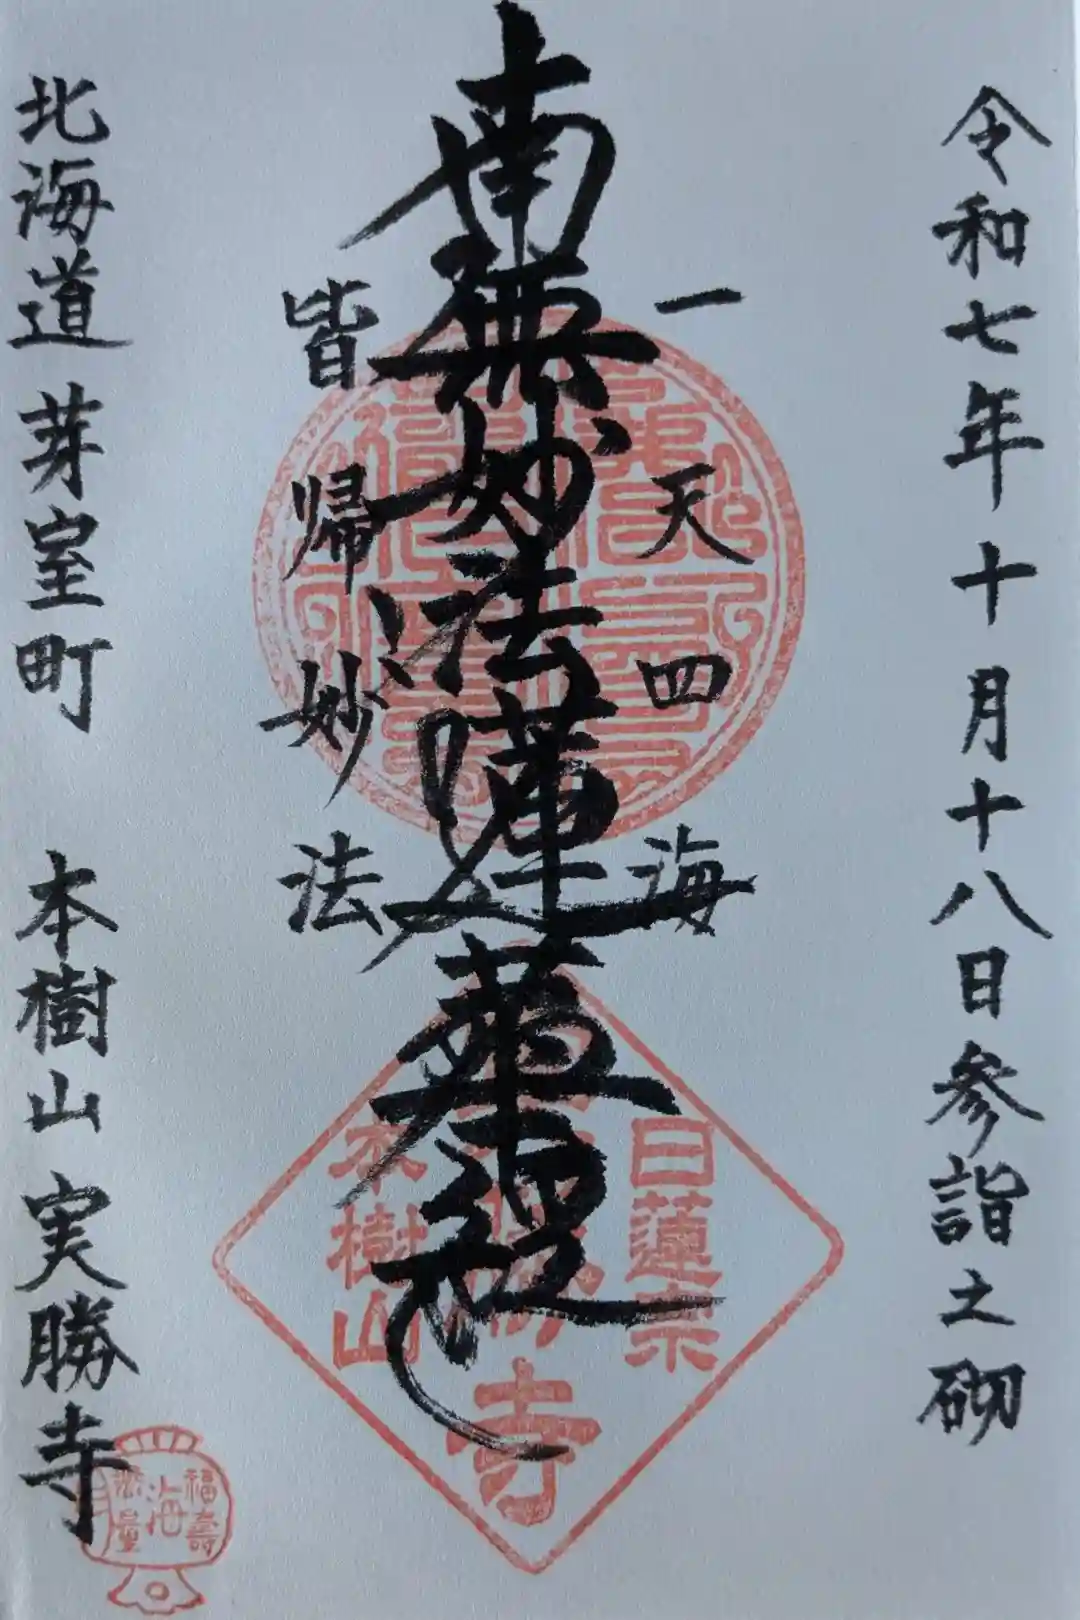 令和七年十月十八日参詣之砌
一天四海
南無妙法蓮華経
皆帰妙法
北海道 芽室町 本樹山 実勝寺
日蓮宗
寺
本樹山
福壽
海
無量